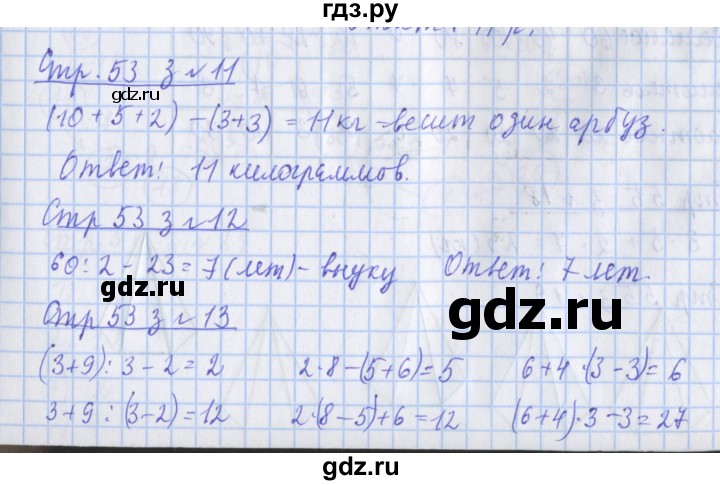 гдз.ру
Стр. 53 з №11
gdz.ru
(10+5+2)-(3+3)=11кг-весит один арбуз.
Ответ: 11 килограммов.
Стр 53 з №12
60:2-23=7(лет)-внуку Ответ: 7 лет.
gdz.ru
gdz.ru
Стр 53 з №13
(3+9):3-2=2 2·8-(5+6)=5 6+4·(3-3)=6
3+9:(3-2)=12 2·(8-5)+6=12 (6+4)·3-3=27
gdz.ru
gdz.ru